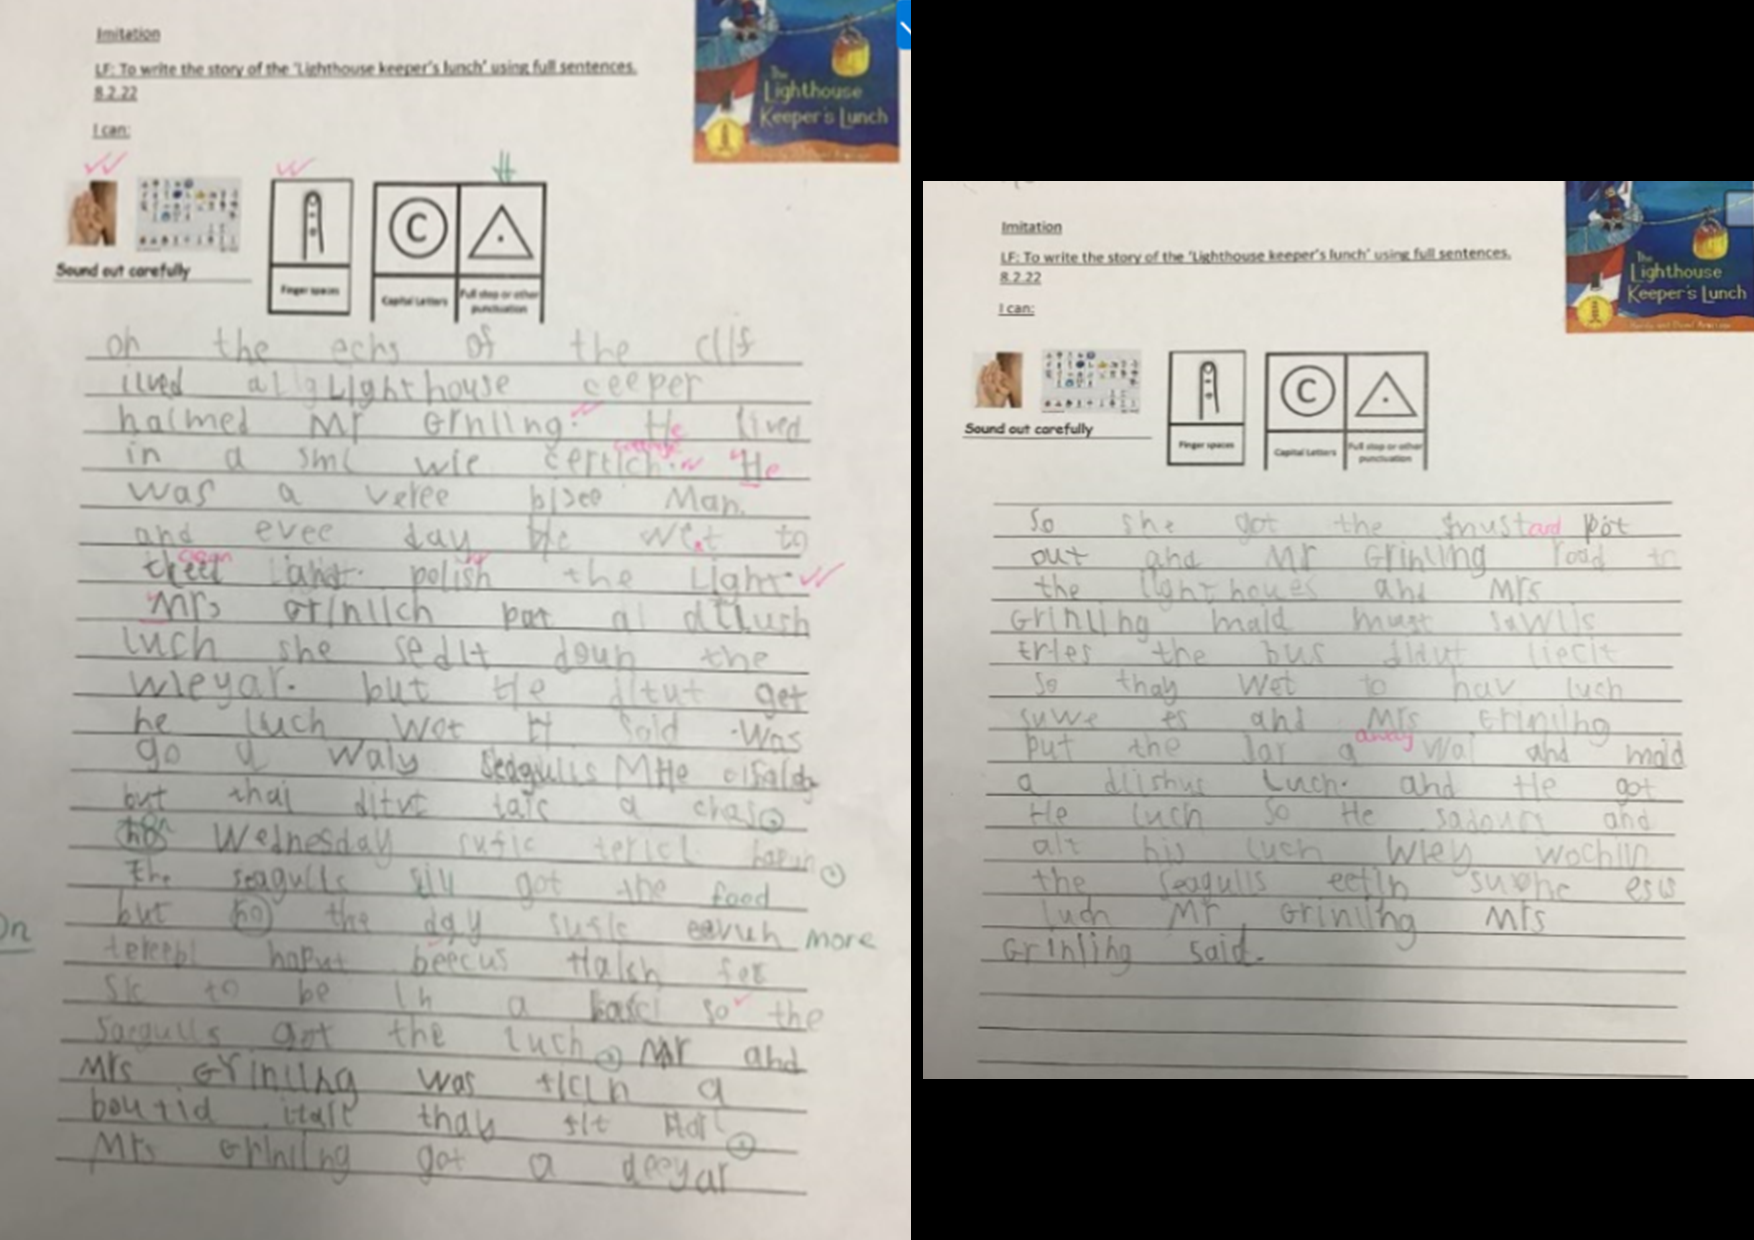 Imitation
LF: To write the story of the 'Lighthouse keeper's lunch' using full sentences.
8.2.22
I can:
The
Lighthouse
Keeper's Lunch
Sound out carefully
Finger spaces
Capital Letters
Full stop or other
punctuation
on the echs of the cllf
lived a Lighthouse ceeper
halmed Mr Grnling. He lived
in a sml wie certich. He
cottage
was a veree bisee Man.
and evee day He wet to
clean
polish the Light.
Mrs Grinlich pat al dllush
luch she sedlt doun the
wleyar. but He ditut get
he luch wot H sold Was
go a waly Seagulls
but thai ditut tals a chas
on Wednesday sufic tericl hapun
The seagulls sill got the food
but on the day sufic eevuh more
On
terecbl haput beecus
Sic to be in a so the
Saegulls got the luch Mr and
Mrs Grinling was ticin a
boutid itali thay
Mrs Grinling got a deeyar
Imitation
LF: To write the story of the 'Lighthouse keeper's lunch' using full sentences.
8.2.22
I can:
The
Lighthouse
Keeper's Lunch
Sound out carefully
Finger spaces
Capital Letters
Full stop or other
punctuation
So she got the mustard pot
out and Mr Grinling road to
the lighthoues and Mrs
Grinling maid must sawlis
tries the bus didut liecit
so thay wet to hav luch
suwe es and Mrs Grinling
away
put the Jar a wai and maid
a dlishus Luch. and He got
He luch so He sadours and
alt his luch wley wochin
the Seagulls eetin suwhe
luch Mr Grinling Mrs
Grinling said.